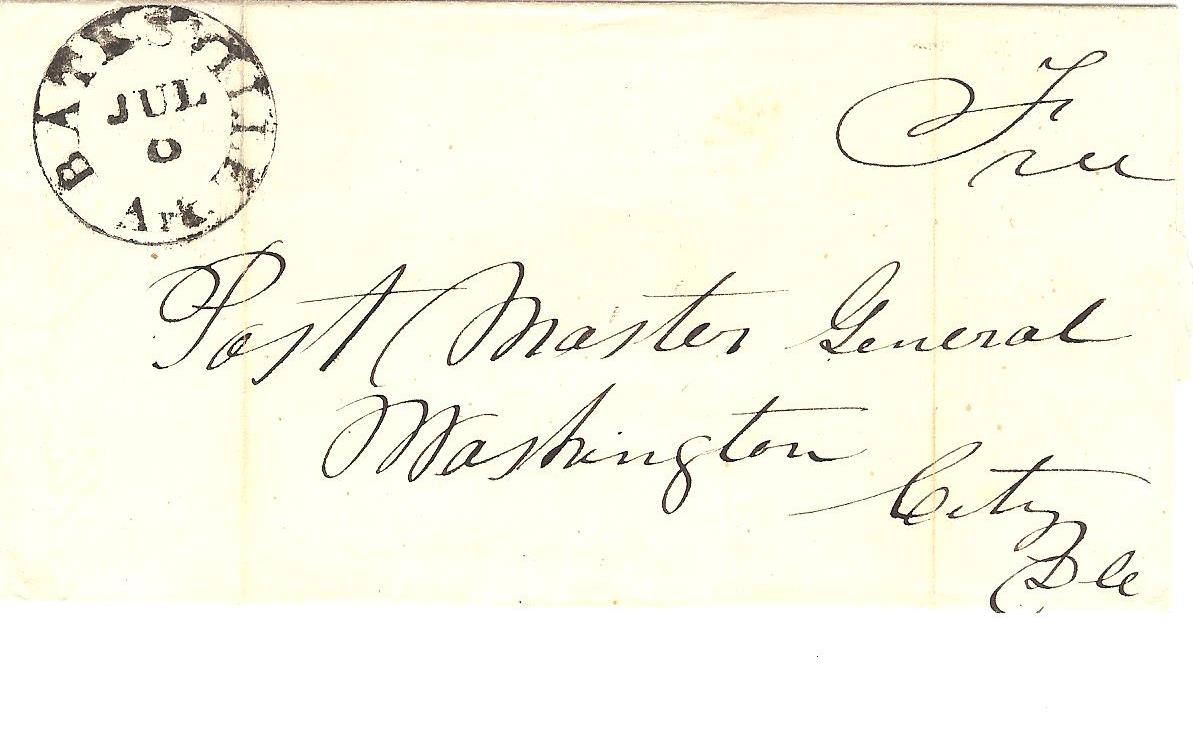 BATESVILLE
JUL
Ark.
Free
Post Master General
Washington
City
D C